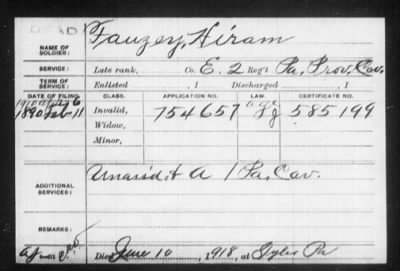 DEAD
Fauzey, Hiram
NAME OF SOLDIER:
SERVICE: Late rank, Co. E. 2 Reg't Pa. Prov. Cav.
TERM OF SERVICE: Enlisted , 1 Discharged , 1
DATE OF FILING. CLASS. APPLICATION NO. LAW. CERTIFICATE NO.
1890 Feb 11 Invalid, 754657 585199
Widow,
Minor,
ADDITIONAL SERVICES: Unasid. & A 1 Pa. Cav.
REMARKS:
Died June 10 , 1918, at Pa